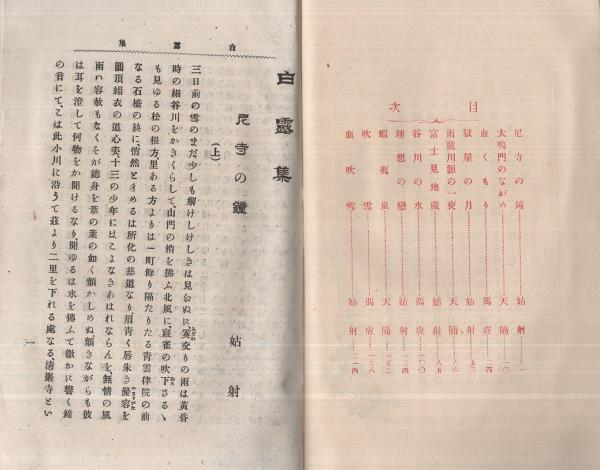 目次
尼寺の鐘……姑射…一
大鳴門のながめ……天隨…一〇
血くもり……彌虚…二四
獄屋の月……姑射…
雨龍川源の一夜……天隨…
富士見地藏……姑射…八五
谷川の水……彌虚…一〇
理想の戀……姑射…
蝦夷泉……天隨…一五二
吹雪……彌虚…一七八
血吹雪……姑射…二一四
白露集
白露集
尼寺の鐘
姑射
(上)
三日前の雪のまだ少しも解けしけしきは見えぬに、霙交りの雨は黃昏
時の細谷川をかきくらして、山門の梢を拂ふ北風に、寒雀の吹下さるゝ
も見ゆる松の根方、里ある方よりは一町餘り隔たりたる靑雲律院の前
なる石橋の袂に、悄然と彳めるは所化の慈道なり、眉靑く唇朱き優容を
圓頂緇衣の道心姿、十三の少年にはこよなきあはれならんを、無情の風
雨ハ容赦もなくそが總身を葦の葉の如く顫かしめぬ、顫きながらも彼
は耳を澄して何物をか聞けるなり、聞ゆるは水を傳ふて微かに響く鐘
の音にて、こは此小川に沿うて茲より二里を下れる處なる、淸嚴寺とい
一